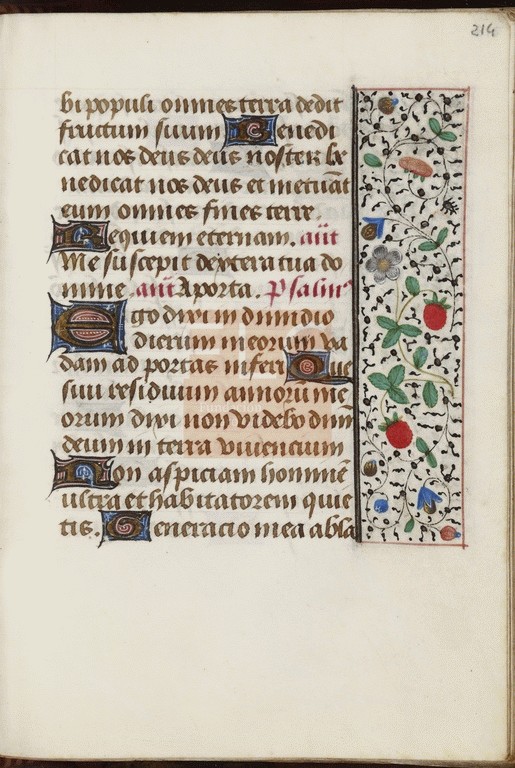 214
bi populi omnes terra dedit
fructum suum Benedi
cat nos deus deus noster be
nedicat nos deus et metuāt
eum omnes fines terre.
Requiem eternam. añt
Me suscepit dextera tua do
mine añt A porta. Psalmꝰ
Ego dixi in dimidio
dierum meorum va
dam ad portas inferi Que
sivi residuum annorū me
orum dixi non videbo dñm
deum in terra viuencium
Non aspiciam hominē
ultra et habitatorem quie
tis. Generacio mea abla
Fundación